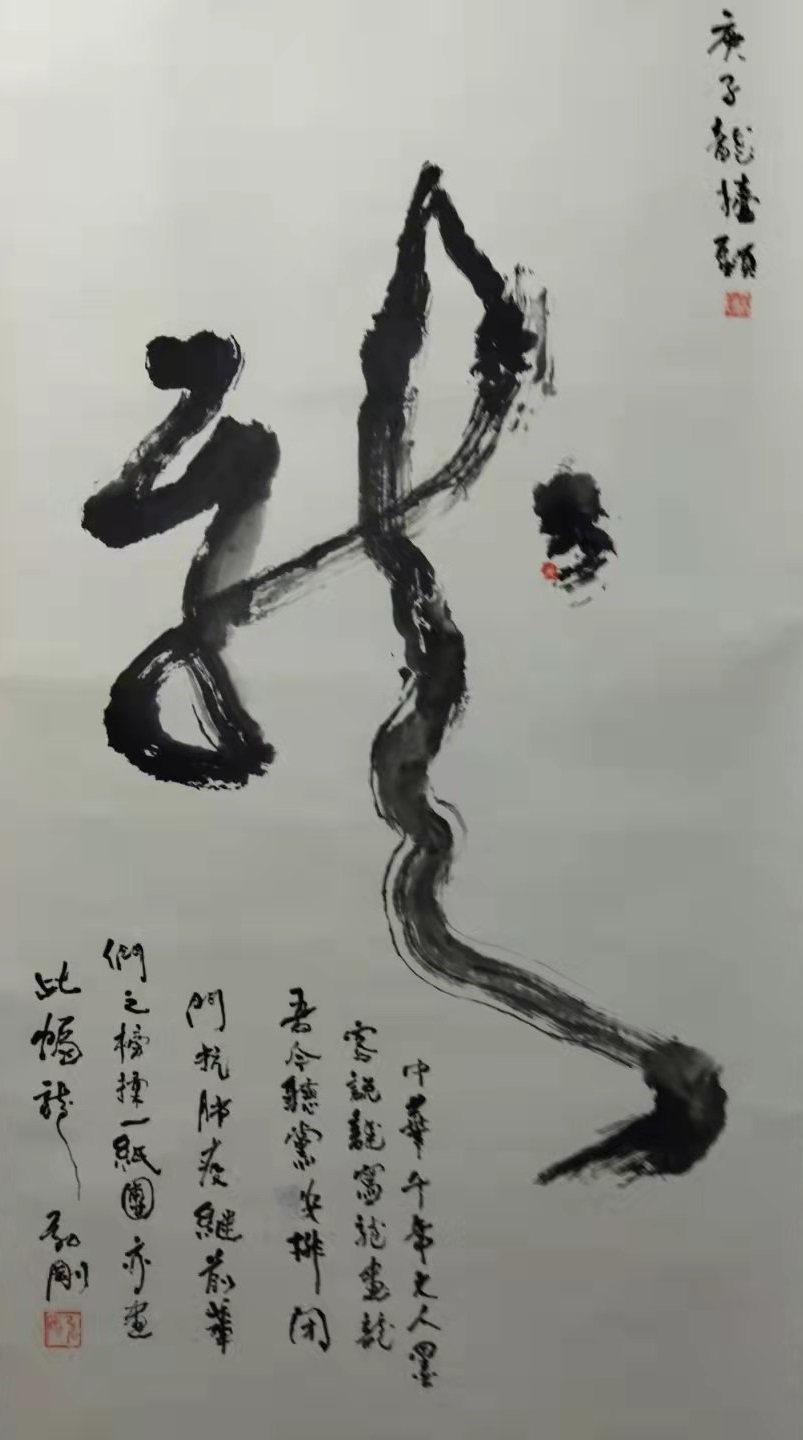 庚子龍擡頭
龍
中華千年文人墨
客説龍寫龍畫龍
吾今聽黨安排閉
門抗肺疫繼前輩
們之榜揉一紙團亦畫
此幅龍
剛